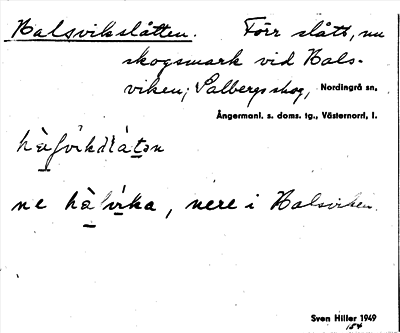 Halsvikslåtten. Förr slått, nu
skogsmark vid Hals-
viken; Salbergs skog, Nordingrå sn,
Ångermanl. s. doms. tg., Västernorrl, l.
ne hàlvíka, nere i Halsviken.
Sven Hiller 1949